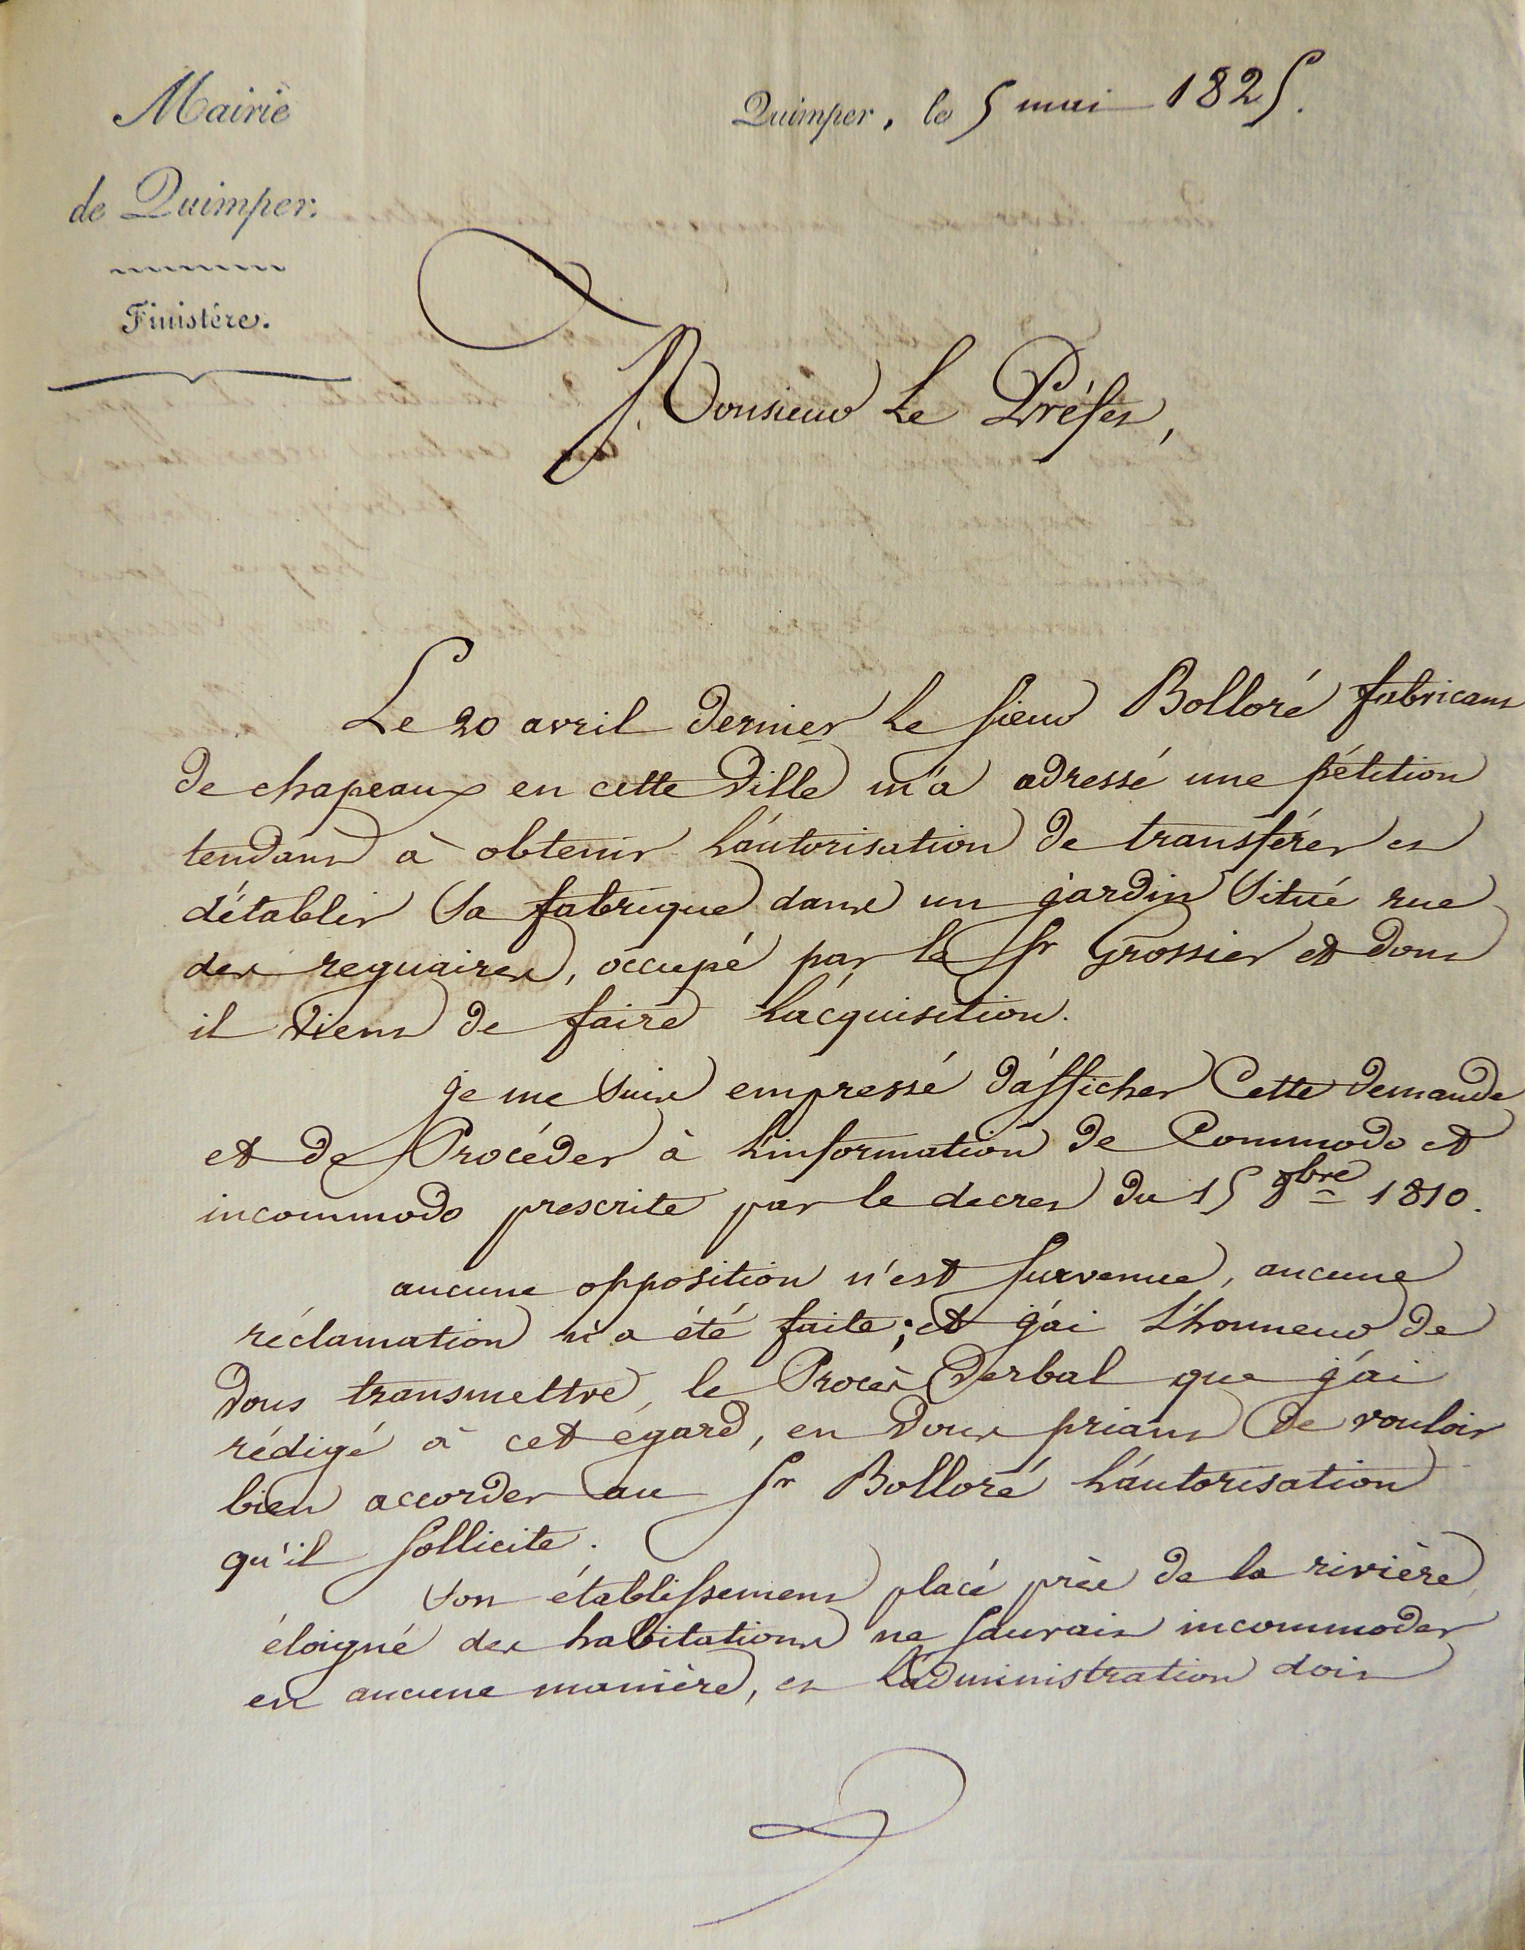 Mairie
de Quimper.
Finistère.
Quimper, le 5 mai 1825.
Monsieur Le Préfet,
Le 20 avril dernier le sieur Bolloré fabricant
de chapeaux en cette ville m'a adressé une pétition
tendant à obtenir l'autorisation de transférer et
d'établir sa fabrique dans un jardin situé rue
des reguaires, occupé par le Sr Grossier et dont
il vient de faire l'acquisition.
je me suis empressé d'afficher cette demande
et de Procéder à l'information de Commodo et
incommodo prescrite par le decret du 15 8bre 1810.
aucune opposition n'est survenue, aucune
réclamation n'a été faite; et j'ai l'honneur de
vous transmettre, le Procès Verbal que j'ai
rédigé à cet égard, en vous priant de vouloir
bien accorder au Sr Bolloré l'autorisation
qu'il sollicite.
son établissement placé près de la rivière
éloigné des habitations ne saurait incommoder
en aucune manière, et l'administration doit